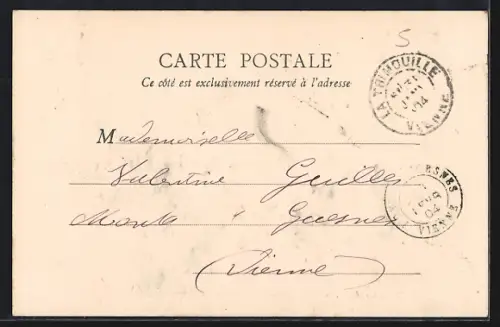 5
CARTE POSTALE
Ce côté est exclusivement réservé à l'adresse
LA TRIMOUILLE
VIENNE
Mademoiselle
Valentine
à Guesnes
(Vienne)
VIENNE